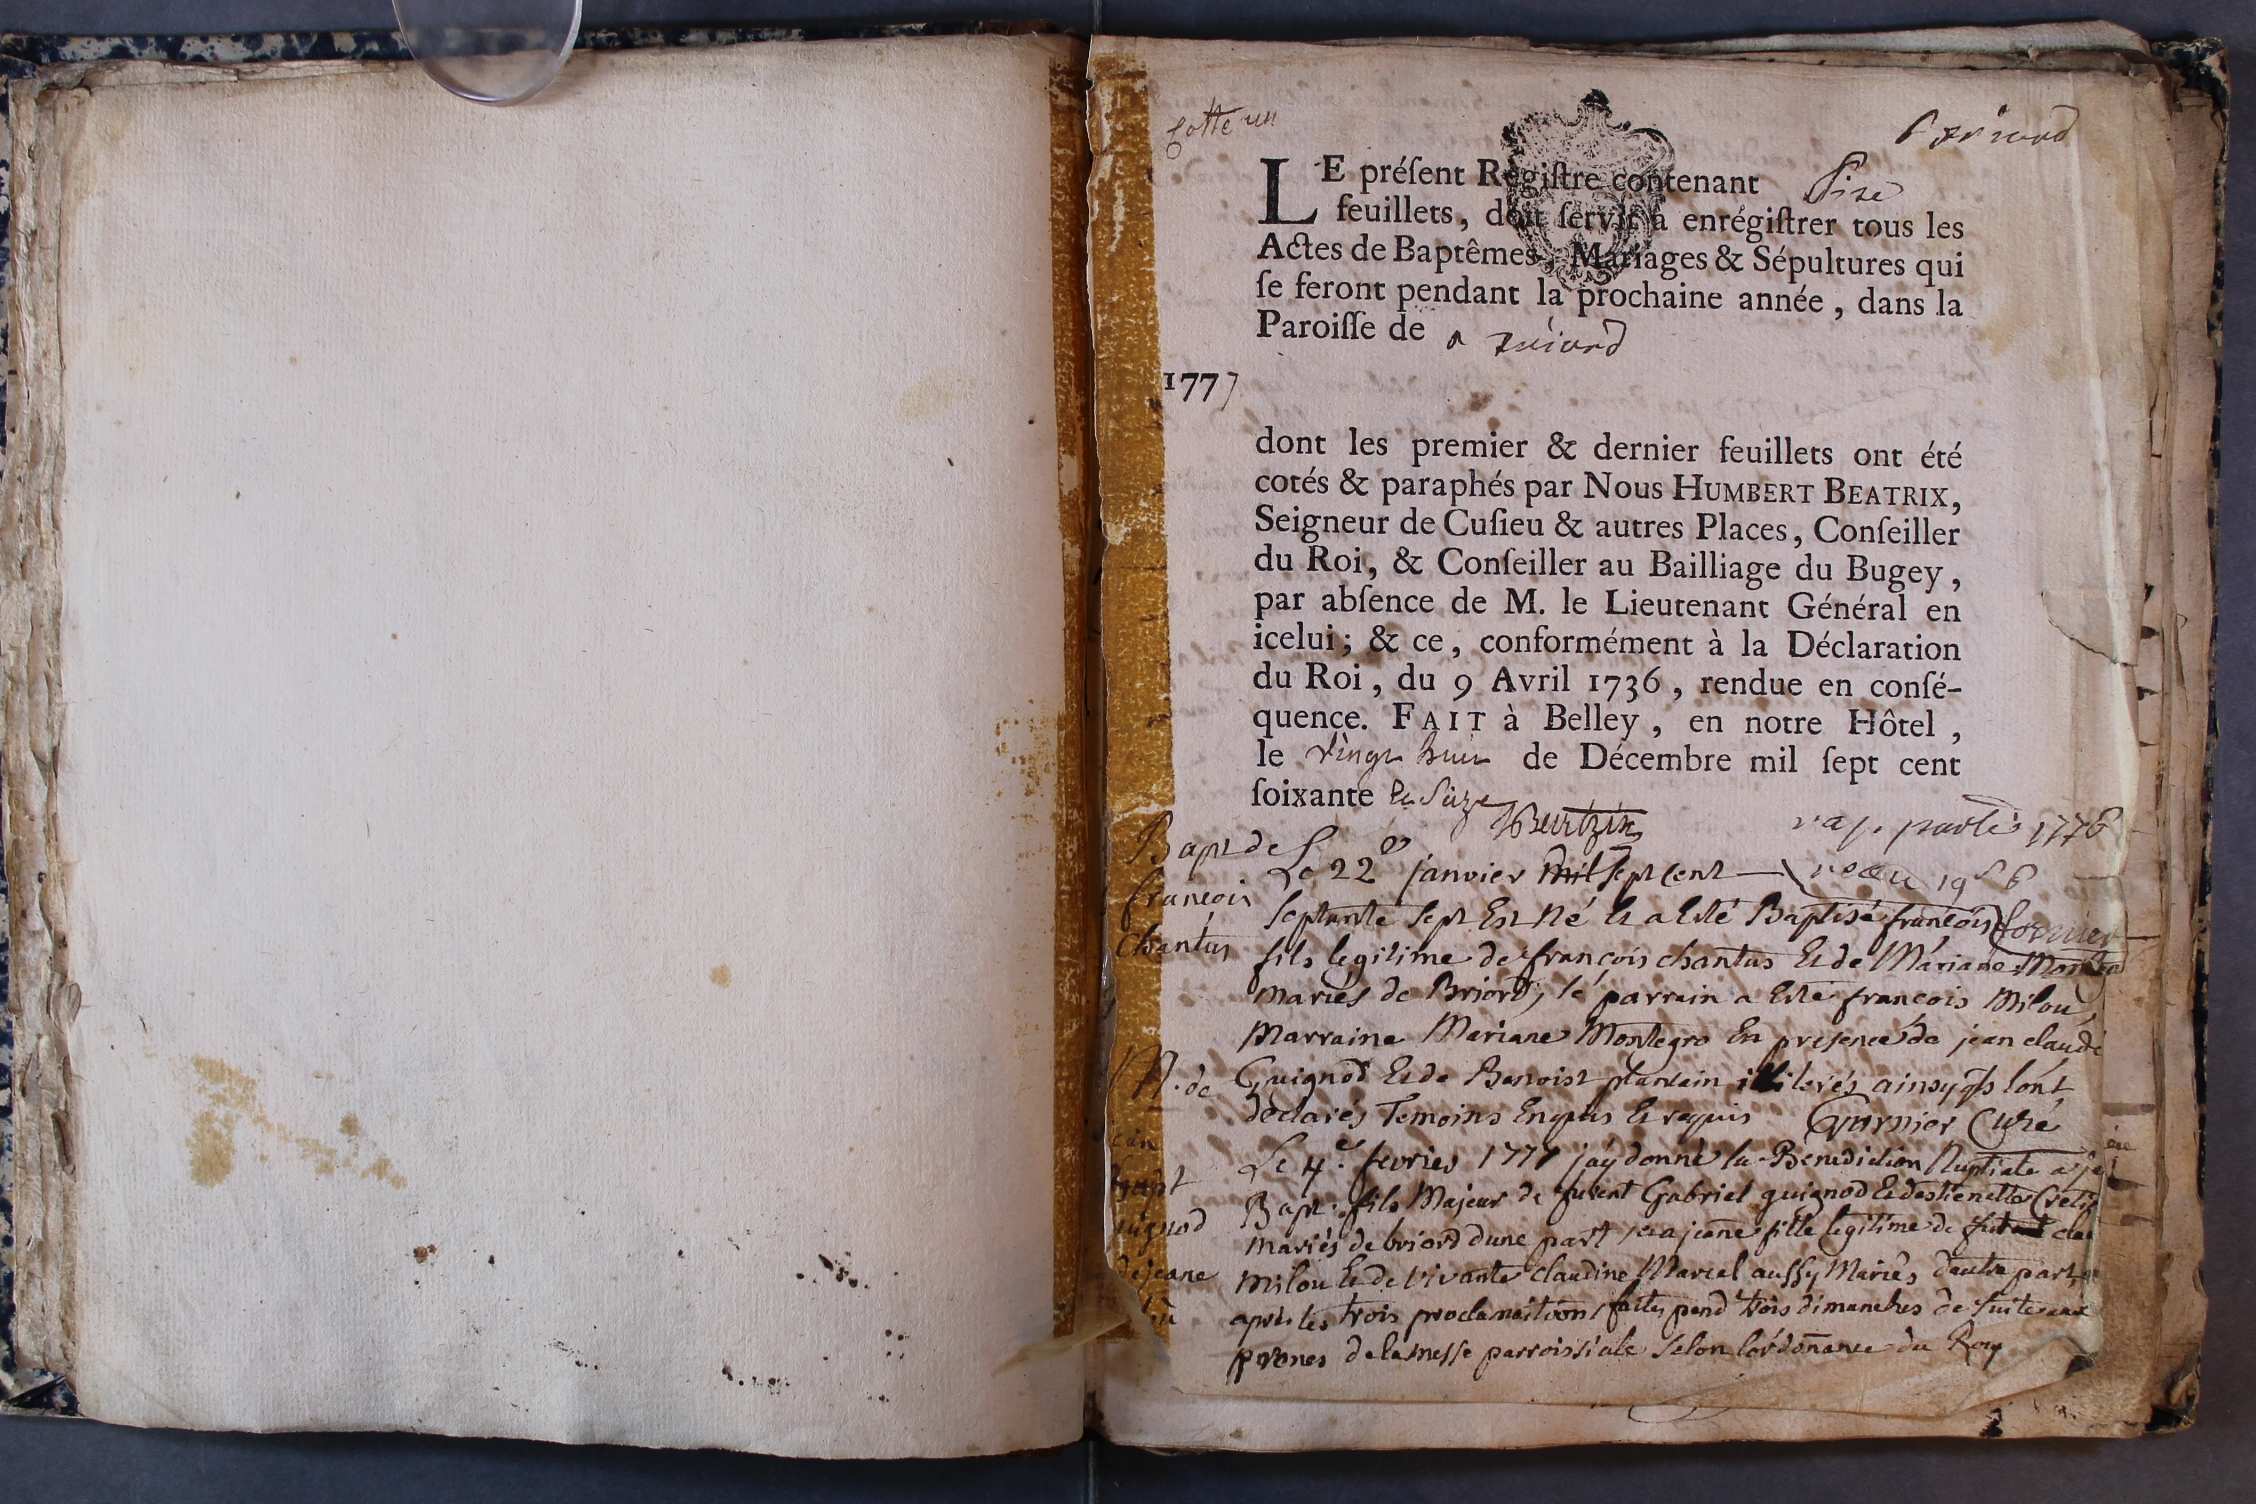 Cotte un
Briord
LE préſent Regiſtre contenant Size
feuillets, doit ſervir à enrégiſtrer tous les
Actes de Baptêmes, Mariages & Sépultures qui
ſe feront pendant la prochaine année, dans la
Paroiſſe de Briord
1777
dont les premier & dernier feuillets ont été
cotés & paraphés par Nous HUMBERT BEATRIX,
Seigneur de Cuſieu & autres Places, Conſeiller
du Roi, & Conſeiller au Bailliage du Bugey,
par abſence de M. le Lieutenant Général en
icelui; & ce, conformément à la Déclaration
du Roi, du 9 Avril 1736, rendue en conſé-
quence. FAIT à Belley, en notre Hôtel,
le vingt huit de Décembre mil ſept cent
ſoixante et Seize
Beatrix
1776
Bapt de
françois
Chantus
Le 22e janvier mil sept cent
septante sept Est Né et a Esté Baptisé françois
fils legitime de françois chantus Et de Mariane
mariés de Briord, le parrain a Esté françois Milou
Marraine Mariane Montegro En presence de jean claude
Guignod Et de Benoist plantain illiterés ainsy qls lont
declarés Temoins Enquis Et requis Garnier Curé
M. de
Bapt
Guignod
de jeane
Le 4e. fevrier 1777 jay donné la Benediction Nuptiale a
Bapt. fils Majeur de furent Gabriel guignod Et destienette
mariés de briord dune part et a jeane fille legitime de
milou Et de vivante claudine Marcel aussy Mariés dautre part
apres les trois proclamations faites pend trois dimanches de suite aux
prones de la messe parroissiale selon lordonnance du Roy